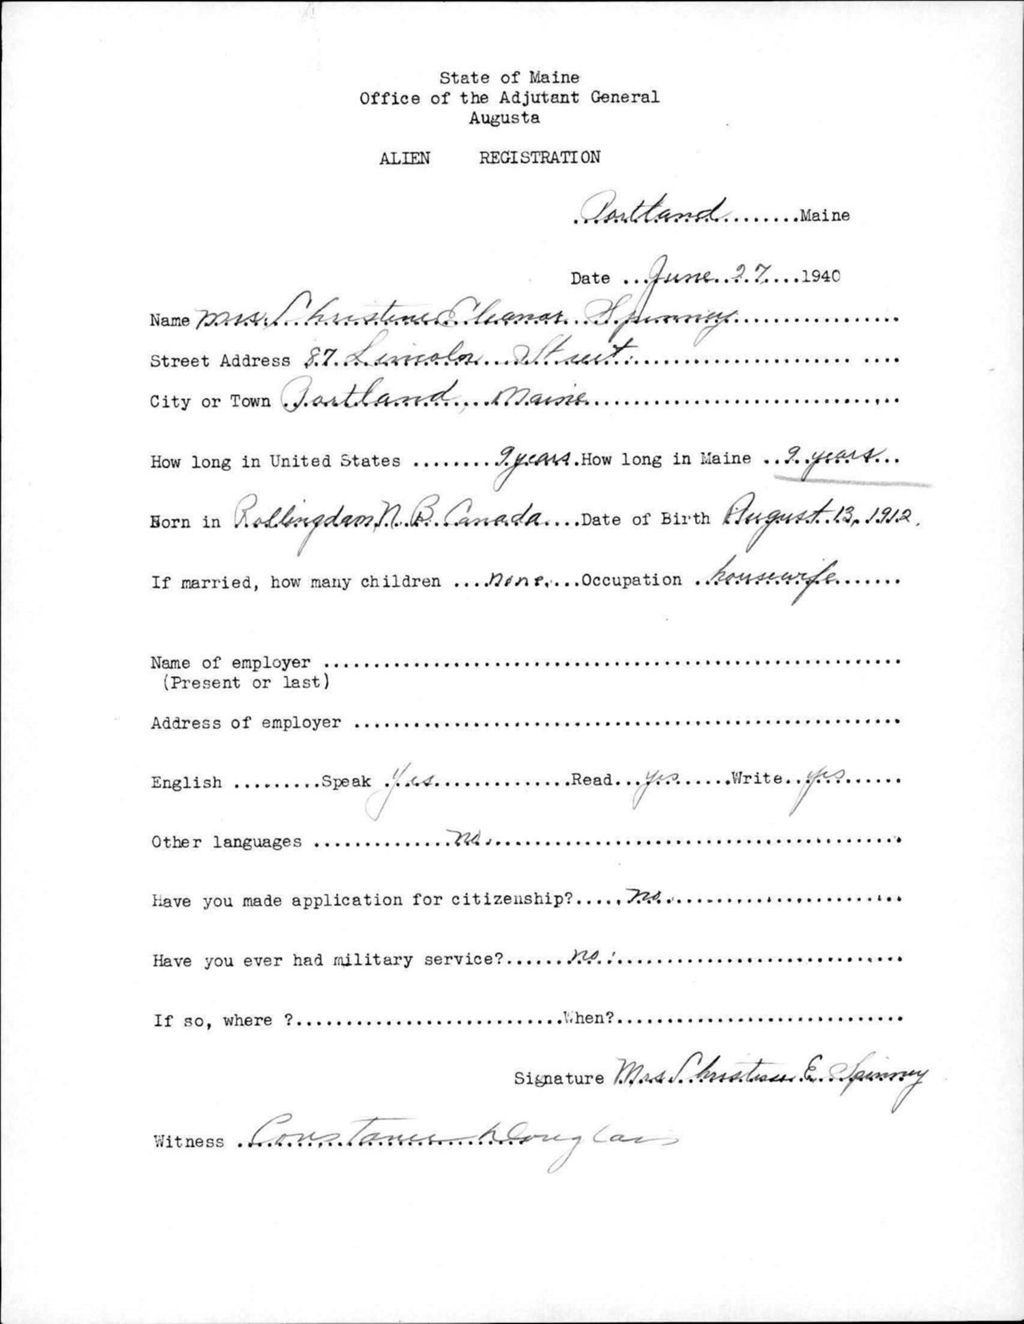 State of Maine
Office of the Adjutant General
Augusta
ALIEN REGISTRATION
Portland........Maine
Date ...June..27....1940
Name Mrs. Christine Eleanor Spinney
Street Address 87 Lincoln Street.
City or Town Portland, Maine
How long in United States ........9 years.How long in Maine ..9 years...
Born in Rollingdam, N. B. Canada....Date of Birth August 13, 1912.
If married, how many children ...none....Occupation ..housewife.......
Name of employer ....................................................
(Present or last)
Address of employer ....................................................
English .........Speak .Yes..............Read...yes......Write..yes......
Other languages ..............no.............................................
Have you made application for citizenship?.....no..........................
Have you ever had military service?......no..................................
If so, where ?..........................When?............................
Signature Mrs. Christine E. Spinney
Witness .Constance Douglass